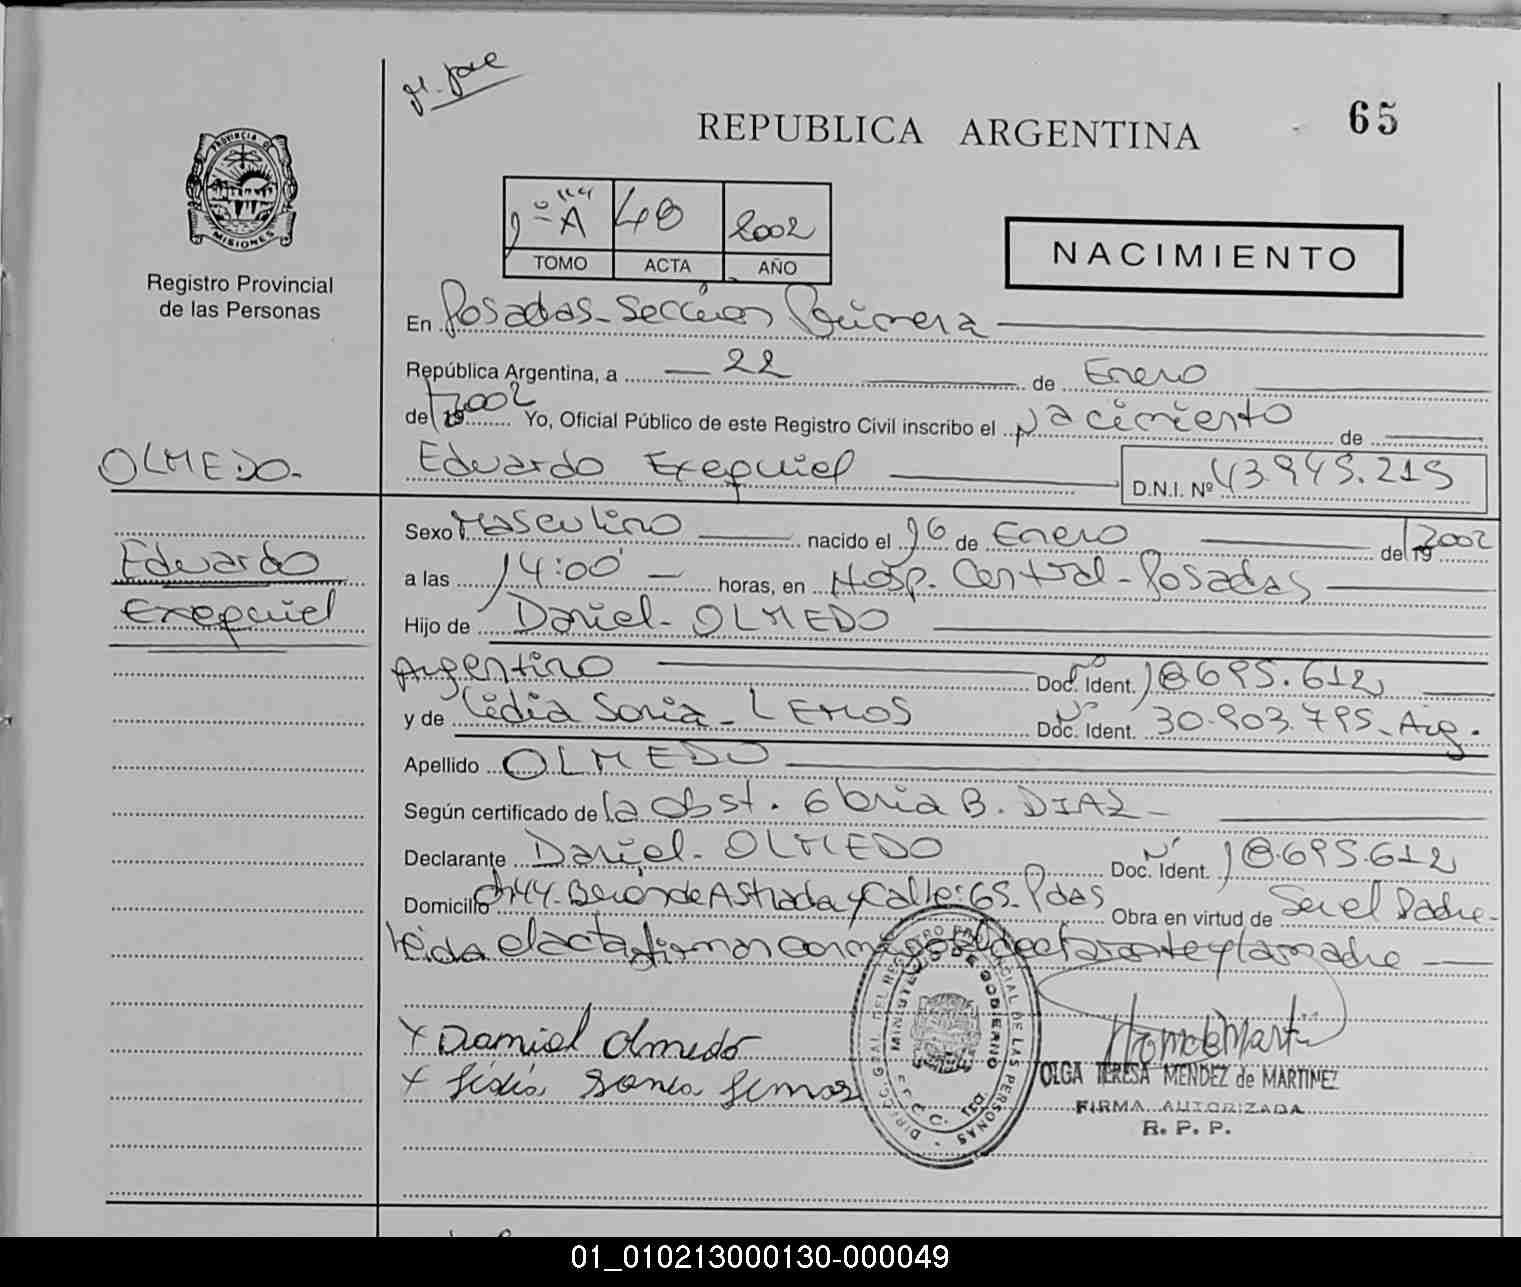 65
REPUBLICA ARGENTINA
PROVINCIA DE
MISIONES
Registro Provincial
de las Personas
1º "A" 40 2002
TOMO ACTA AÑO
NACIMIENTO
En Posadas - Sección Primera
República Argentina, a 22 de Enero
de 19 2002 Yo, Oficial Público de este Registro Civil inscribo el Nacimiento de
OLMEDO.
Eduardo Exequiel D.N.I. Nº 43.945.215
Eduardo
Exequiel
Sexo Masculino nacido el 16 de Enero de 19 2002
a las 14:00 horas, en Hosp. Central - Posadas
Hijo de Daniel - OLMEDO
Argentino Doc. Ident. Nº 18.695.612
y de Lidia Sonia - LEMOS Doc. Ident. Nº 30.903.795 - Arg.
Apellido OLMEDO
Según certificado de la Obst. Gloria B. DIAZ -
Declarante Daniel - OLMEDO Doc. Ident. Nº 18.695.612
Domicilio Ch 44. Berón de Astrada y Calle: 65 - Pdas Obra en virtud de Ser el Padre -
Leida el acta firman conmigo el declarante y la madre
x Daniel Olmedo
x Lidia Sonia Lemos
DIREC. GRAL. DEL REGISTRO PROVINCIAL DE LAS PERSONAS
MINISTERIO DE GOBIERNO
OLGA TERESA MENDEZ de MARTINEZ
FIRMA AUTORIZADA
R. P. P.
01_010213000130-000049